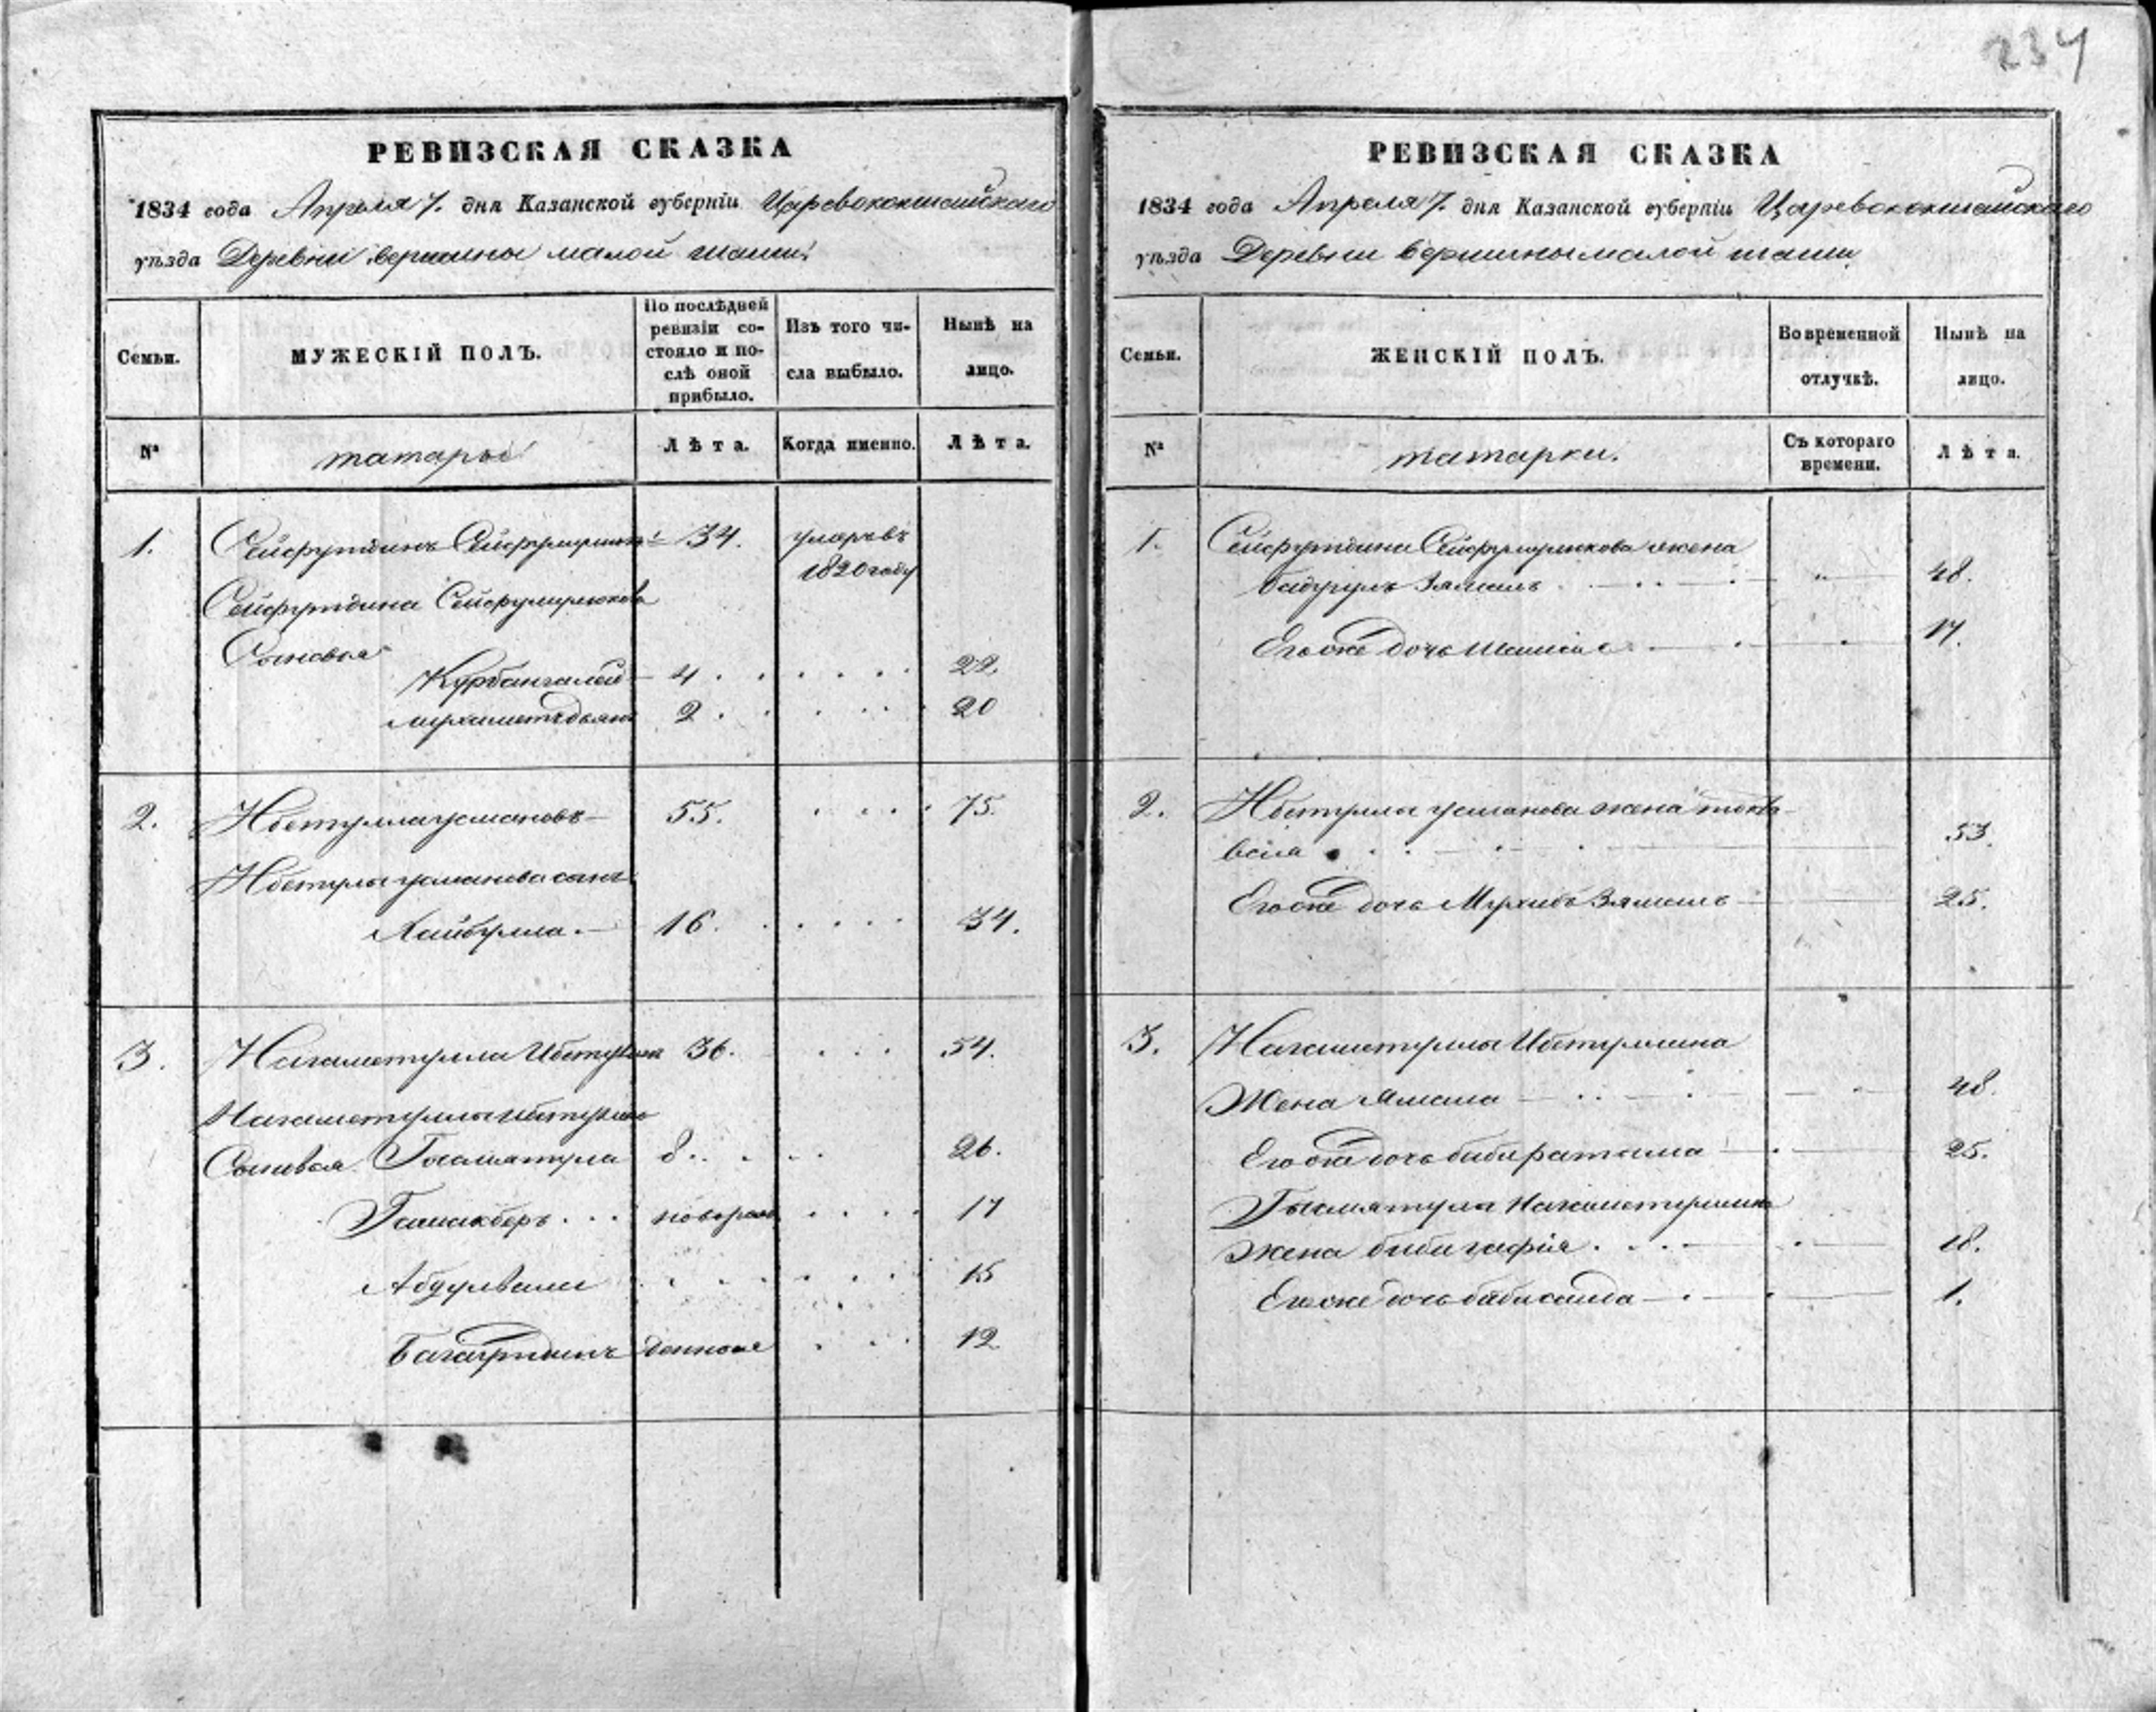 234
РЕВИЗСКАЯ СКАЗКА
1834 года Апреля 7. дня Казанской губерніи Царевококшайскаго
уѣзда Деревни вершины малой шаши
Семьи. МУЖЕСКІЙ ПОЛЪ. По послѣдней ревизіи состояло и послѣ оной прибыло. Изъ того числа выбыло. Нынѣ на лицо.
№ татары Лѣта. Когда именно. Лѣта.
1. Сейфутдинъ 34. умеръ въ
1820 году
Сейфутдина Сейфулмулюкова
Сыновья
Курбангалей 4 22.
мухаметчдьянъ 2 20
2. Ибетулла усмановъ 55. 75.
Ибетулы усманова сынъ
Хайбулла. 16. 34.
3. Нагаметулла 36. 54.
Нагаметуллы
Сыновья 8 26.
новорож 17
Абдулвали 15
Багаутдинъ денные 12
РЕВИЗСКАЯ СКАЗКА
1834 года Апреля 7. дня Казанской губерніи Царевококшайскаго
уѣзда Деревни вершины малой шаши
Семьи. ЖЕНСКІЙ ПОЛЪ. Во временной отлучкѣ. Нынѣ на лицо.
№ татарки. Съ котораго времени. Лѣта.
1. Сейфутдина Сейфулмулюкова жена
Бадугуль Зямиль 48.
Егоже дочь 17.
2. Ибетуллы усманова жена
53.
Егоже дочь Мухибъ Зямиль 25.
3. Нагаметуллы Ибетуллина
Жена 48.
Егоже дочь бибифатима 25.
Нагаметуллина
жена биби 18.
Егоже дочь бибисаида 1.